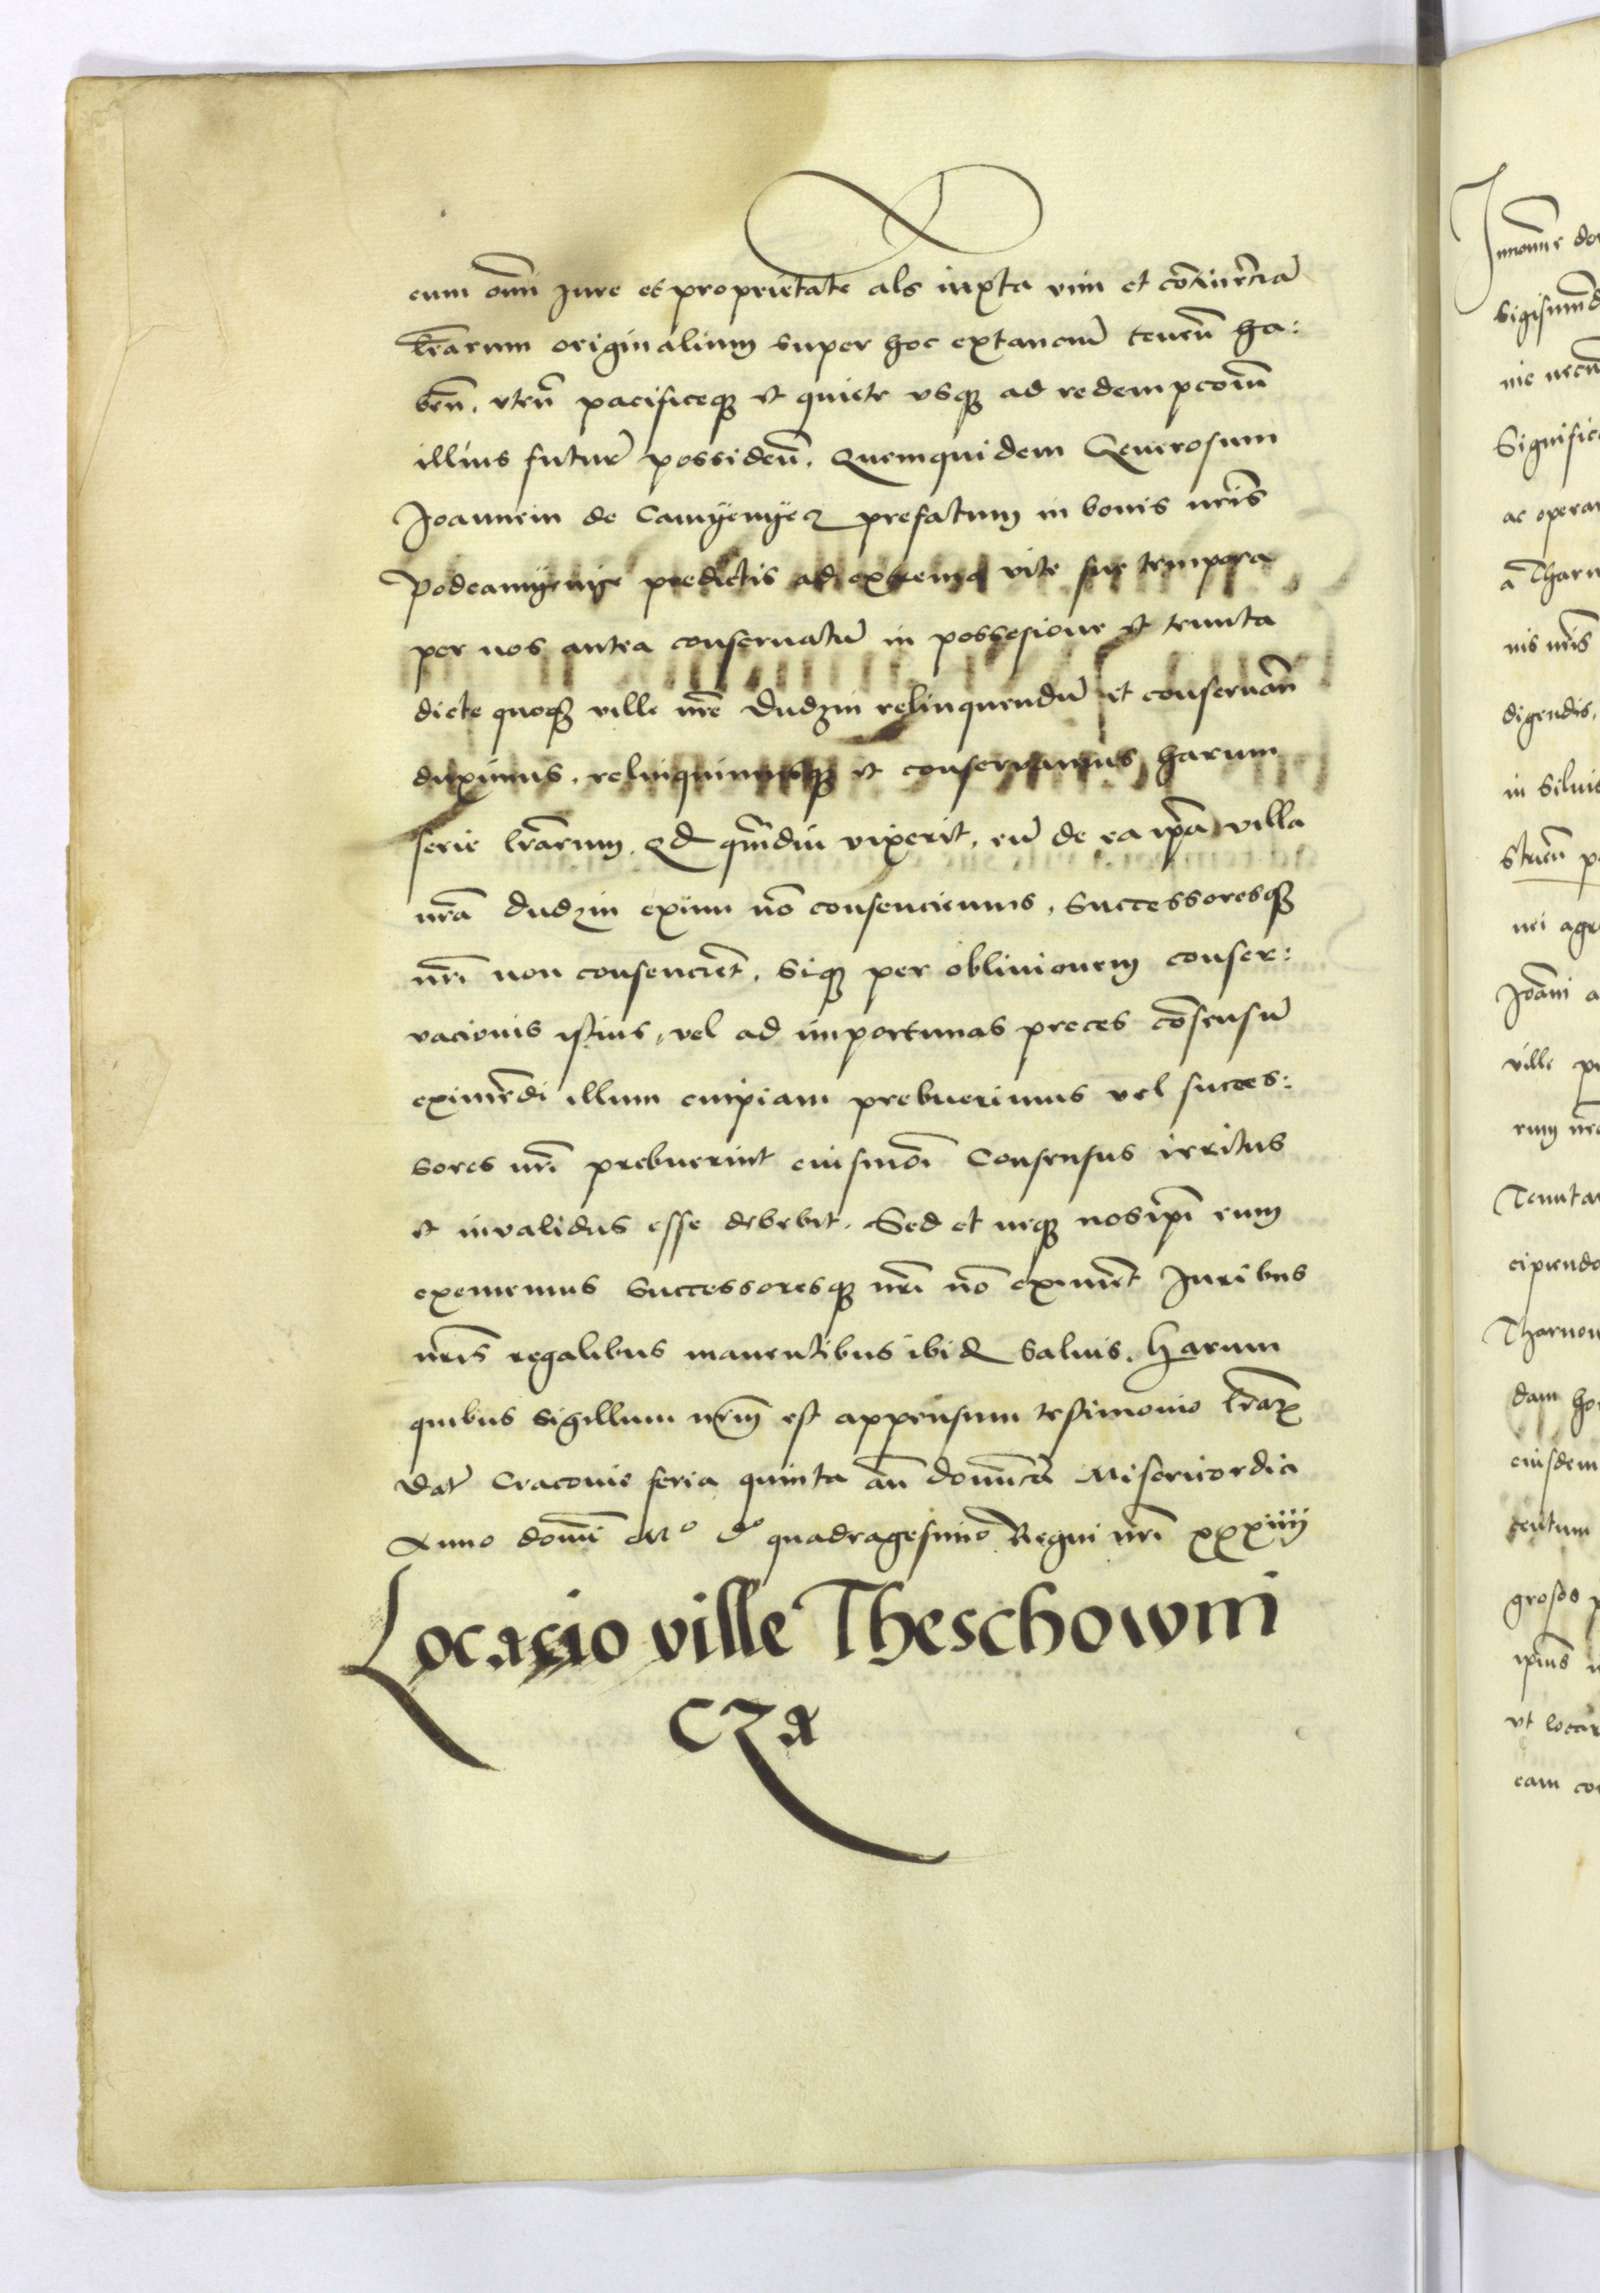 cum omni Jure et proprietate als iuxta vim et cōtinēciā
lrārum originalium super hoc extanciū tenen̄ ha:
ben̄. vten̄ pacificeq₃ et quiete vsq₃ ad redempcōm̄
illius futurā possiden̄. Quemquidem Generosum
Joannem de Camyenyecz prefatum in bonis nr̄is
Podcamyenye predictis ad extrema vite sue tempora
per nos antea conseruatū in possesione et tenuta
dicte quoq₃ ville nr̄e Dudzin relinquendū et conseruan̄
duximus. relinquimusq₃ et conseruamus harum
serie lrārum. Qd q̄mdiu vixerit. eū de ea ip̄a villa
nr̄a Dudzin eximi nō consenciemus, Successoresq₃
nr̄i non consencient̄. Siq₃ per obliuionem conser:
vacionis istius, vel ad importunas preces cōsensū
eximēdi illum cuipiam prebuerimus vel succes:
sores nr̄i prebuerint eiusmōi Consensus irritus
et inualidus esse debebit. Sed et neq₃ nosip̄i eum
exememus Successoresq₃ nr̄i nō eximent̄ Juribus
nr̄is regalibus manentibus ibid̄ saluis. Harum
quibus sigillum nr̄m est appensum testimonio lrārꝝ
Dat̄ Cracouie feria quinta an̄ dominicā Misericordia
Anno domini Mº dº quadragesimo Regni nr̄i xxxiiii
Locacio ville Theschowni
cza
Innomine do
Sigismund
nie necn
Signific
ac opera
a Tharn
nis nr̄is
digendis,
in Siluis
nei agr
Joāni a
ville p
rum nr̄
Tenuta
cipiendo
Tharnow
dam ho
eiusdem
centum
grosos p
ipius
vt locar
eam co